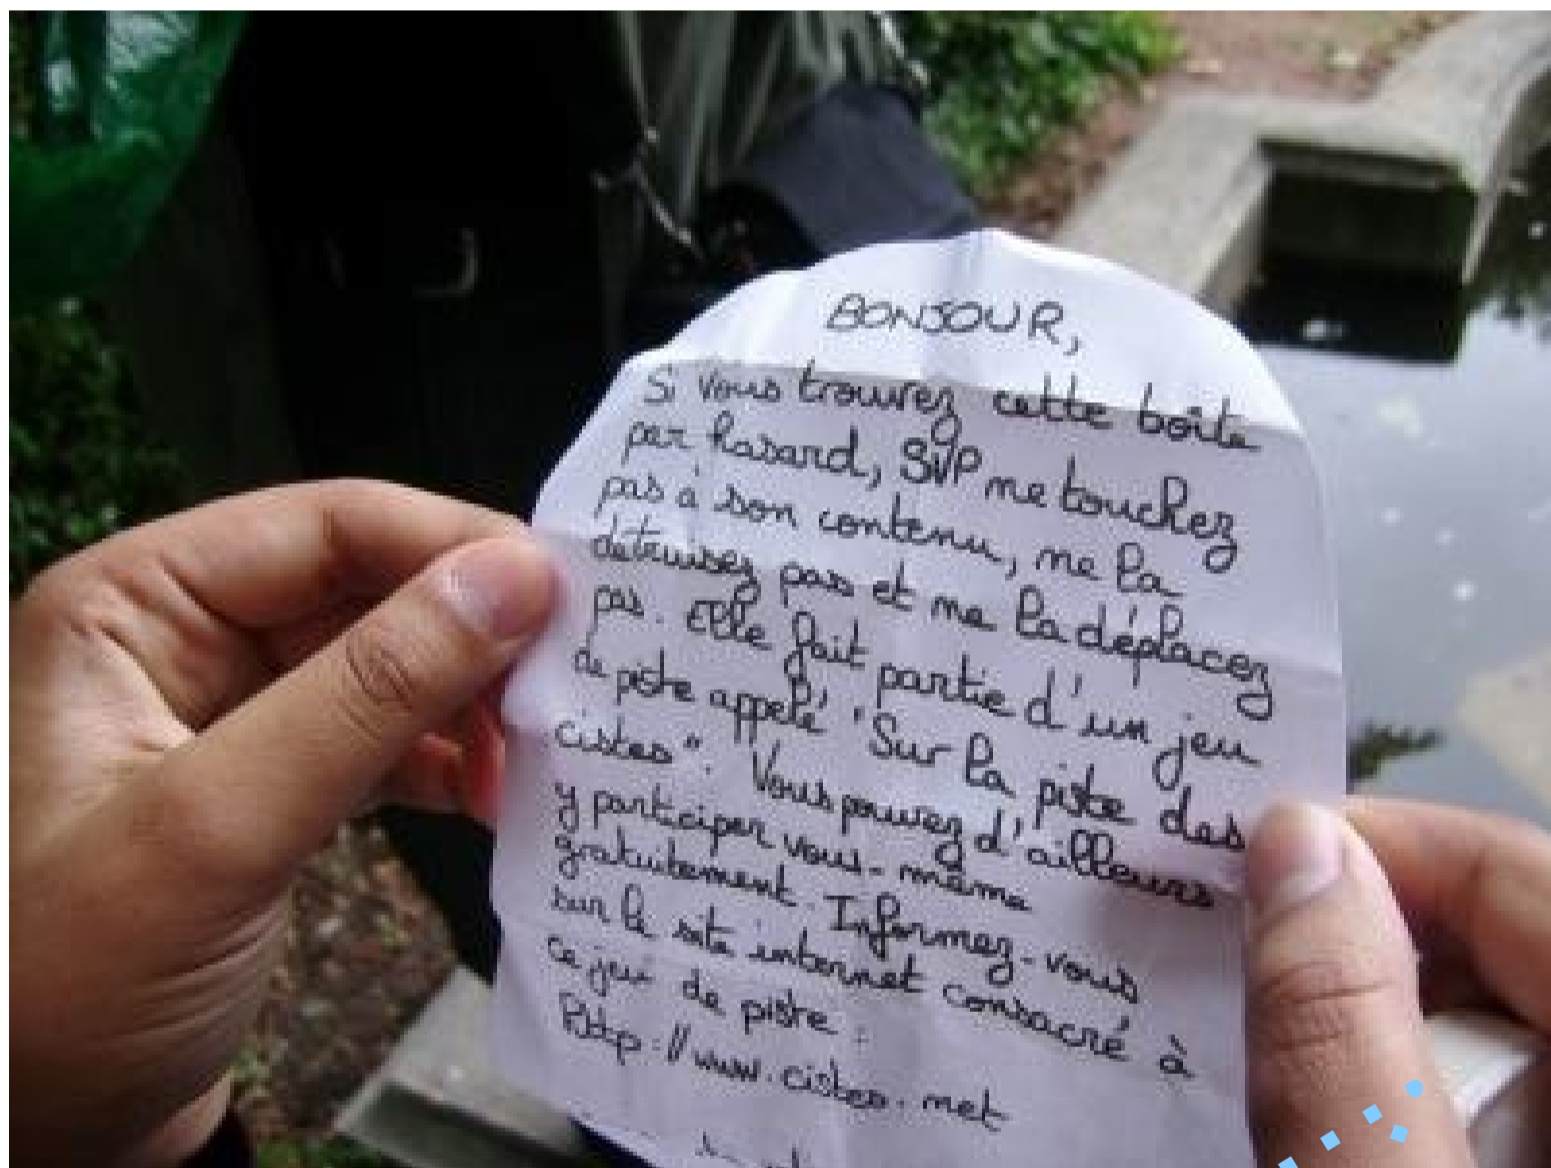 BONJOUR,
Si vous trouvez cette boîte
par hasard, SVP ne touchez
pas à son contenu, ne la
détruisez pas et ne la déplacez
pas. Elle fait partie d'un jeu
de piste appelé "Sur la piste des
cistes". Vous pouvez d'ailleurs
y participer vous-même
gratuitement. Informez-vous
sur le site internet consacré à
ce jeu de piste :
http://www.cistes.net